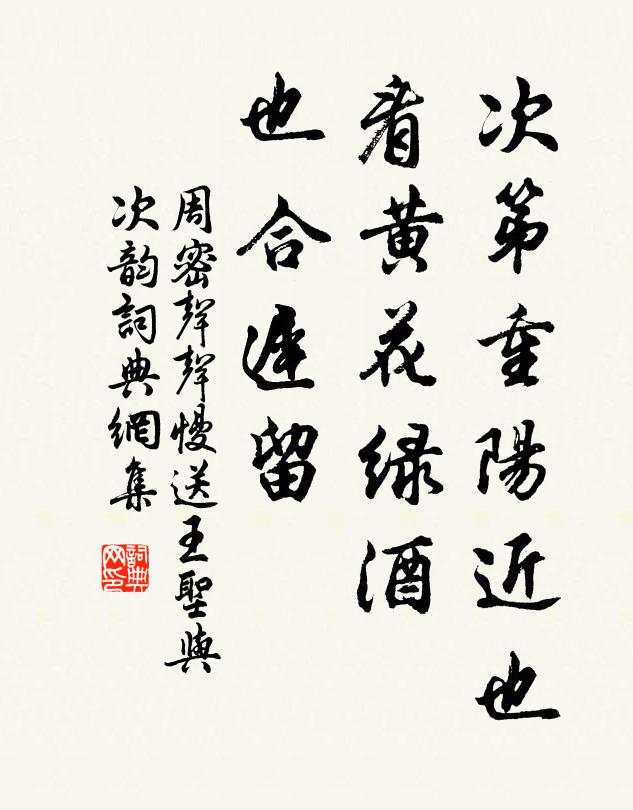 次第重陽近也
看黄花绿酒
也合遲留
周密聲聲慢送王聖與
次韵詞典網集
詞典网印